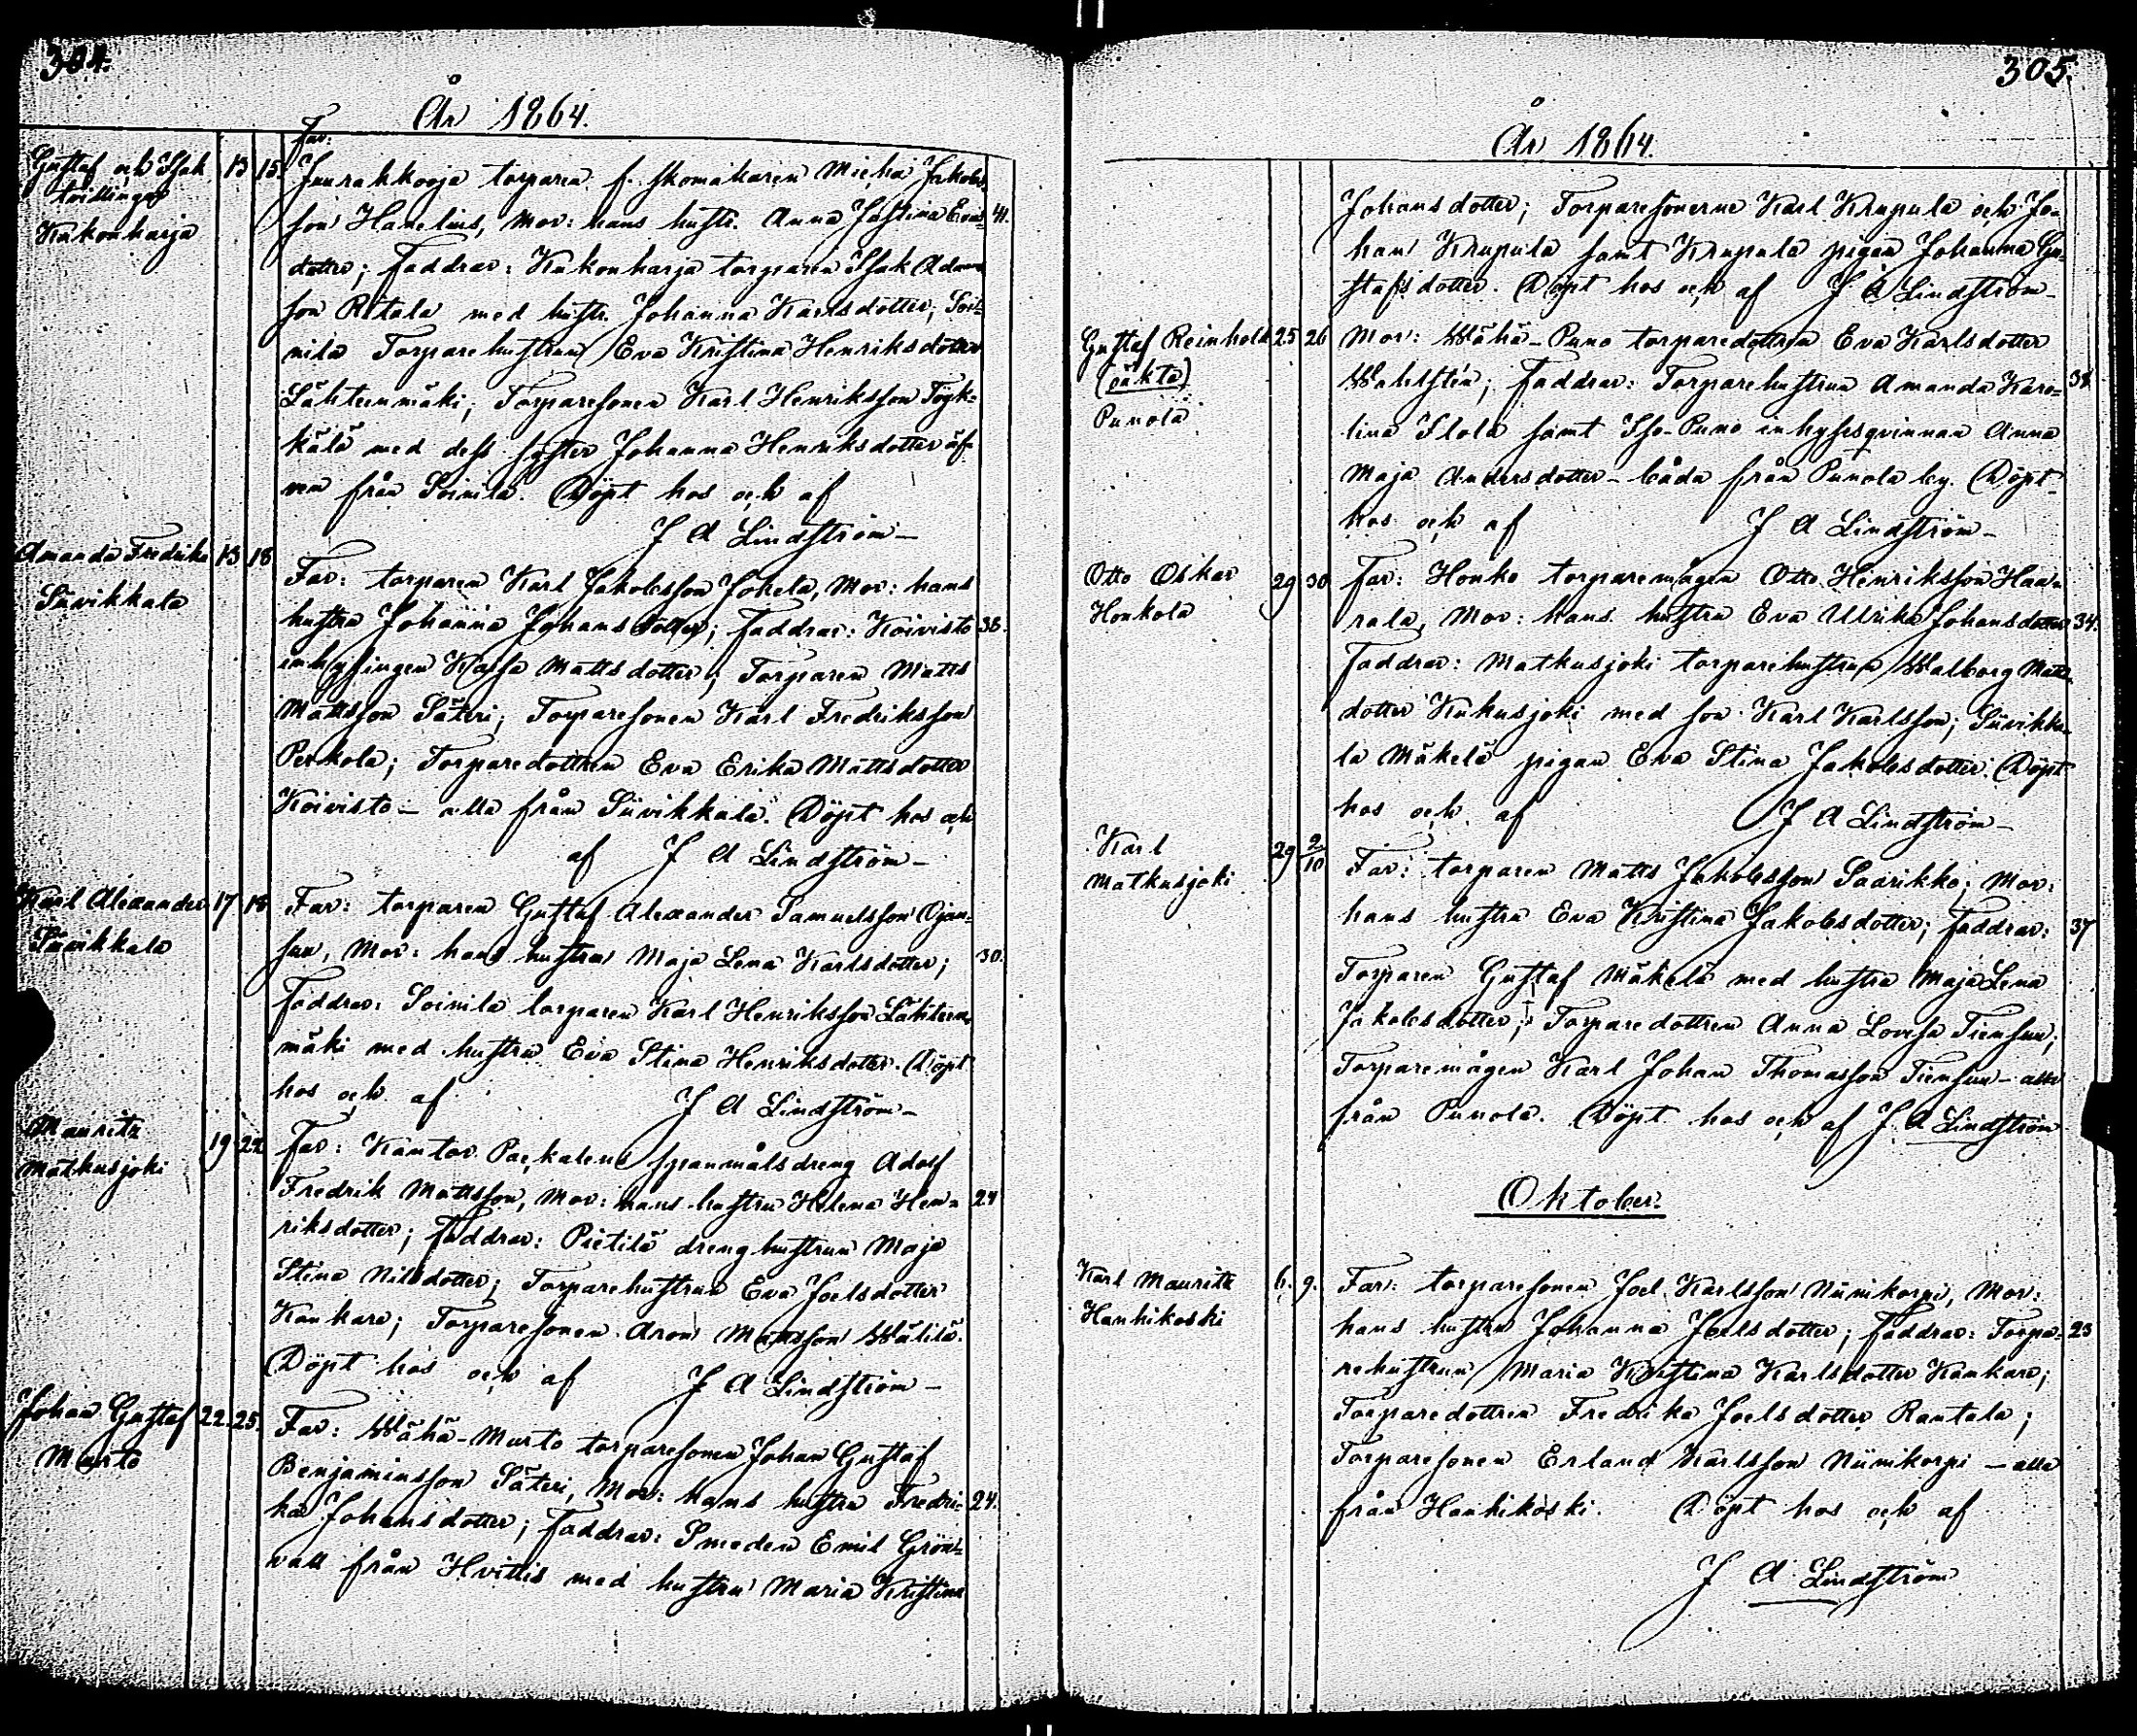 304.
År 1864.
Gustaf och Isak
tvillingar
Kukonharja
13 15.
Far:
Juurakkooja torparen f. skomakaren Michel Jakobs-
son Hanelius, Mor: hans hustr. Anna Justina Eriks- 41.
dotter; Faddrar: Kukonharja torparen Isak Adams
son Rétala med hustr. Johanna Karlsdotter, Soi-
nila Torparehustrun Eva Kristina Henriksdotter
Lähteenmäki; Torparesonen Karl Henriksson Töyk-
kälä med dess syster Johanna Henriksdotter äf-
ven från Soinila. Döpt hos och af
J A Lindström –
Amanda Fredrika 13 18
Siivikkala
Far: torparen Karl Jakobsson Jokela, Mor: hans
hustru Johanna Johansdotter; Faddrar: Koivisto 36.
inhysingen Kajsa Mattsdotter; Torparen Matts
Mattsson Säteri; Torparesonen Karl Fredriksson
Perkola; Torparedottren Eva Erika Mattsdotter
Koivisto – alla från Siivikkala. Döpt hos och
af J A Lindström –
Karl Alexander 17 18
Siivikkala
Far: torparen Gustaf Alexander Samuelsson Ojan-
suu, Mor: hans hustru Maja Lena Karlsdotter; 30.
Faddrar: Soinila torparen Karl Henriksson Lähteen-
mäki med hustru Eva Stina Henriksdotter. Döpt
hos och af J A Lindström –
Mauritz
Matkusjoki
19 22
Far: Kantor Packalens spanmålsdreng Adolf
Fredrik Mattsson, Mor: hans hustru Helena Hen- 24
riksdotter; Faddrar: Pietilä drenghustrun Maja
Stina Nilsdotter; Torparehustrun Eva Joelsdotter
Kankare; Torparesonen Aron Mattsson Wälilä.
Döpt hos och af J A Lindström –
Johan Gustaf 22. 25.
Murto
Far: Wähä-Murto torparesonen Johan Gustaf
Benjaminsson Säteri, Mor: hans hustru Fredri- 24.
ka Johansdotter; Faddrar: Smeden Emil Grön-
vall från Hvittis med hustru Maria Kristina
305.
År 1864.
Johansdotter; Torparesönerne Karl Krupula och Jo-
han Krupula samt Krupula pigan Johanna Gu-
stafsdotter. Döpt hos och af J A Lindström –
Gustaf Reinhold 25 26
(oäkta)
Punola
Mor: Wähä-Puno torparedottren Eva Karlsdotter
Wahlstén; Faddrar: Torparehustrun Amanda Karo- 38
lina Flola samt Iso-Puno inhysesqvinnan Anna
Maja Andersdotter – båda från Punola by. Döpt
hos och af J A Lindström –
Otto Oskar 29 30
Honkola
Far: Honko torparemågen Otto Henriksson Haa-
rala, Mor: hans hustru Eva Ulrika Johansdotter 34.
Faddrar: Matkusjoki torparehustrun Walborg Matts
dotter Kukusjoki med son Karl Karlsson; Siivikka-
la Mäkelä pigan Eva Stina Jakobsdotter. Döpt
hos och af J A Lindström –
Karl 29 2/10
Matkusjoki
Far: torparen Matts Jakobsson Saarikko; Mor:
hans hustru Eva Kristina Jakobsdotter; Faddrar: 37
Torparen Gustaf Mäkelä med hustru Maja Lena
Jakobsdotter; Torparedottren Anna Lovisa Tiensuu;
Torparemågen Karl Johan Thomasson Tiensuu – alla
från Punola. Döpt hos och af J. A Lindström
Oktober.
Karl Mauritz 6. 9.
Hanhikoski
Far: torparesonen Joel Karlsson Niinikorpi, Mor:
hans hustru Johanna Joelsdotter; Faddrar: Torpa- 23
rehustrun Maria Kristina Karlsdotter Kankare;
Torparedottren Fredrika Joelsdotter Rantala;
Torparesonen Erland Karlsson Niinikorpi – alla
från Hanhikoski. Döpt hos och af
J A Lindström